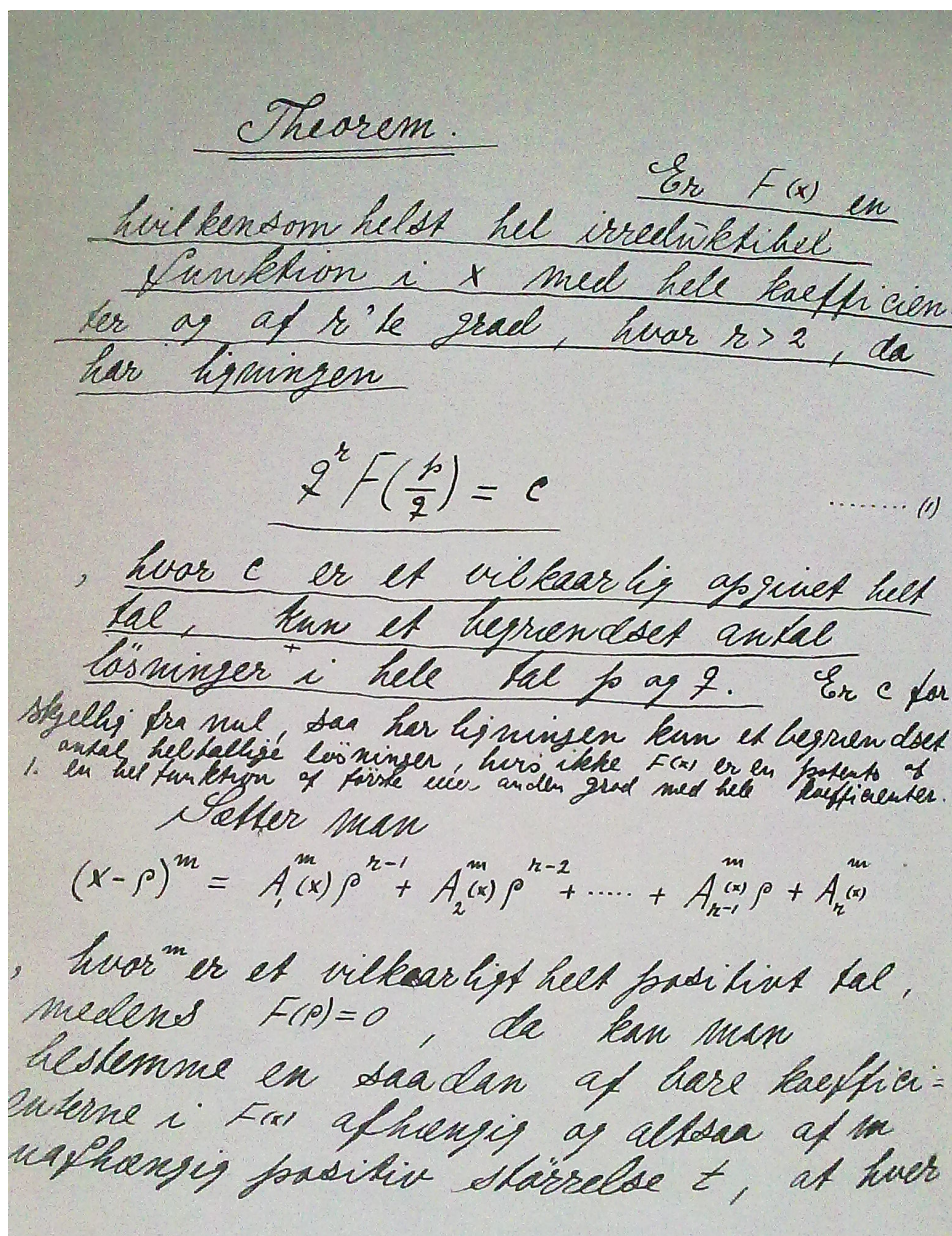 Theorem.
Er F(x) en
hvilkensom helst hel irreduktibel
funktion i x med hele koefficien
ter og af r'te grad, hvor r > 2, da
har ligningen
q^r F(p/q) = c ........ (1)
, hvor c er et vilkaarlig opgivet helt
tal, kun et begrændset antal
lösninger + i hele tal p og q. Er c for
skjellig fra nul, saa har ligningen kun et begrændset
antal heltallige lösninger, hvis ikke F(x) er en potents af
1. en hel funktion af förste eller anden grad med hele koefficienter.
Sætter man
(x-ρ)^m = A_1^m(x) ρ^{r-1} + A_2^m(x) ρ^{r-2} + ...... + A_{r-1}^m(x) ρ + A_r^m(x)
, hvor m er et vilkaarligt helt positivt tal,
medens F(ρ)=0, da kan man
bestemme en saadan af bare koeffici=
enterne i F(x) afhængig og altsaa af m
uafhængig positiv störrelse t, at hver